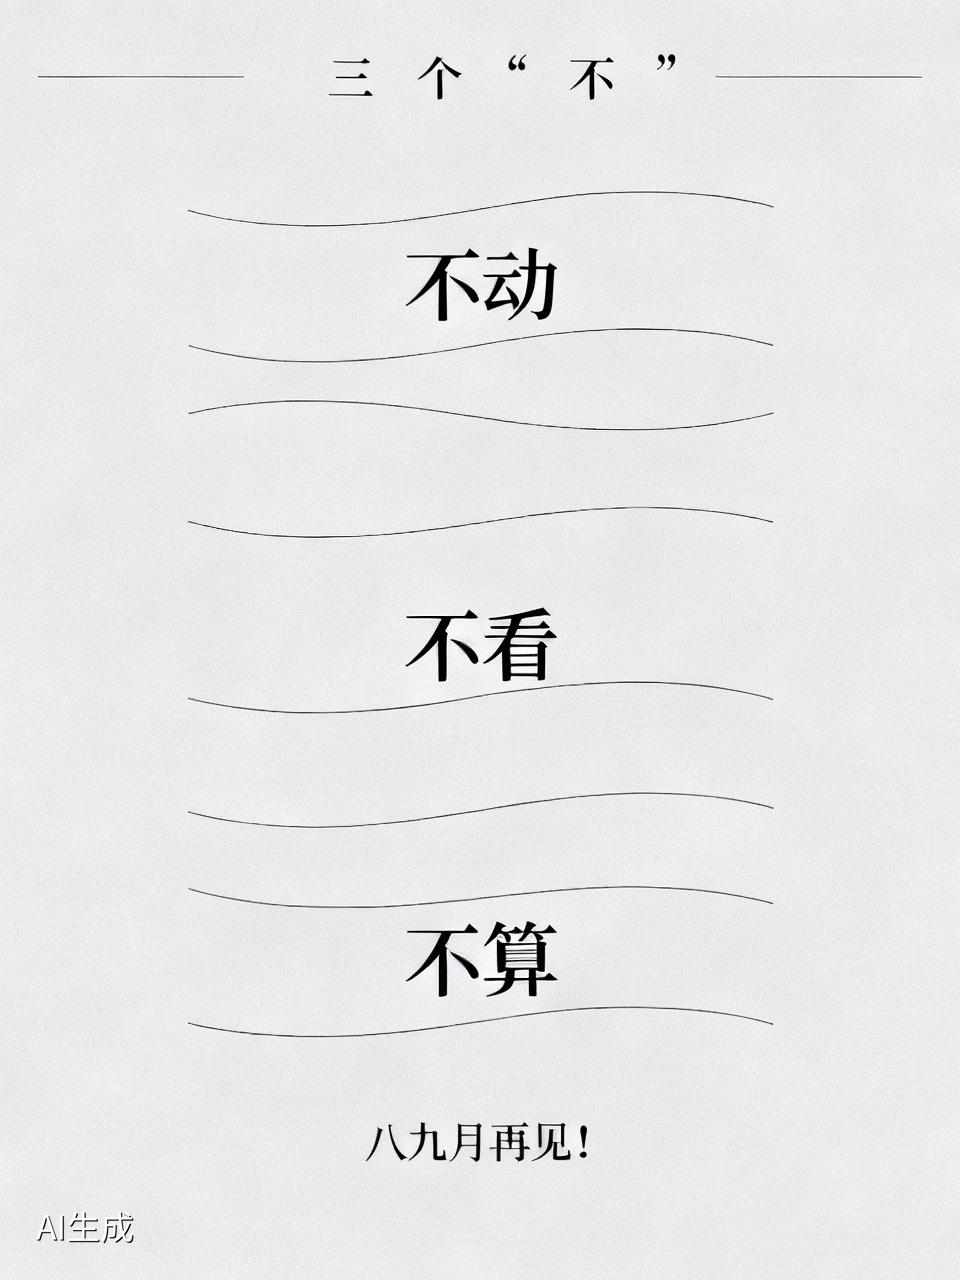 三个“不”
不动
不看
不算
八九月再见！
AI生成